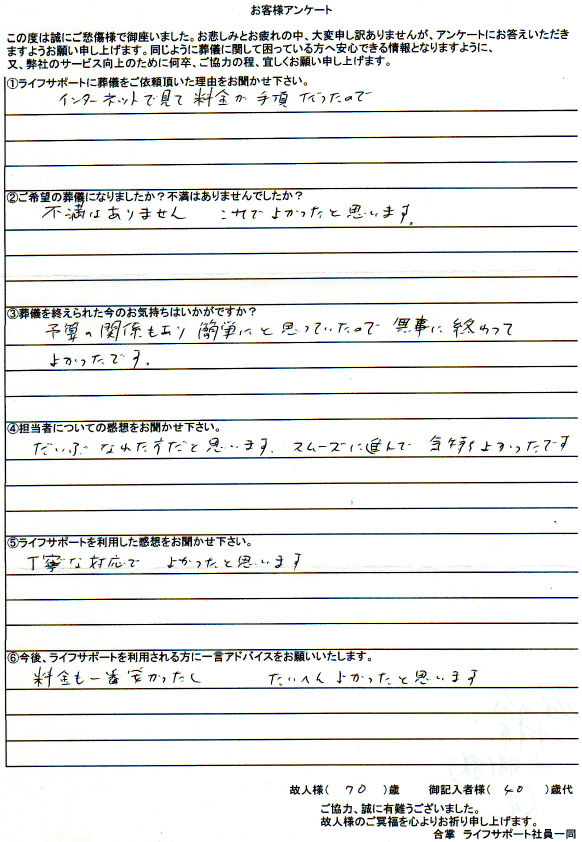 お客様アンケート
この度は誠にご愁傷様で御座いました。お悲しみとお疲れの中、大変申し訳ありませんが、アンケートにお答えいただき
ますようお願い申し上げます。同じように葬儀に関して困っている方へ安心できる情報となりますように、
又、弊社のサービス向上のために何卒、ご協力の程、宜しくお願い申し上げます。
①ライフサポートに葬儀をご依頼頂いた理由をお聞かせ下さい。
インターネットで見て 料金が 手頃 だったので
②ご希望の葬儀になりましたか？不満はありませんでしたか？
不満はありません これで よかったと思います。
③葬儀を終えられた今のお気持ちはいかがですか？
予算の関係もあり 簡単にと思っていたので 無事に終わって
よかったです。
④担当者についての感想をお聞かせ下さい。
だいぶ なれた方だと思います。スムーズに進んで 気持ちよかったです
⑤ライフサポートを利用した感想をお聞かせ下さい。
丁寧な対応で よかったと思います
⑥今後、ライフサポートを利用される方に一言アドバイスをお願いいたします。
料金も一番安かったし たいへんよかったと思います
故人様( 70 )歳 御記入者様( 40 )歳代
ご協力、誠に有難うございました。
故人様のご冥福を心よりお祈り申し上げます。
合掌 ライフサポート社員一同